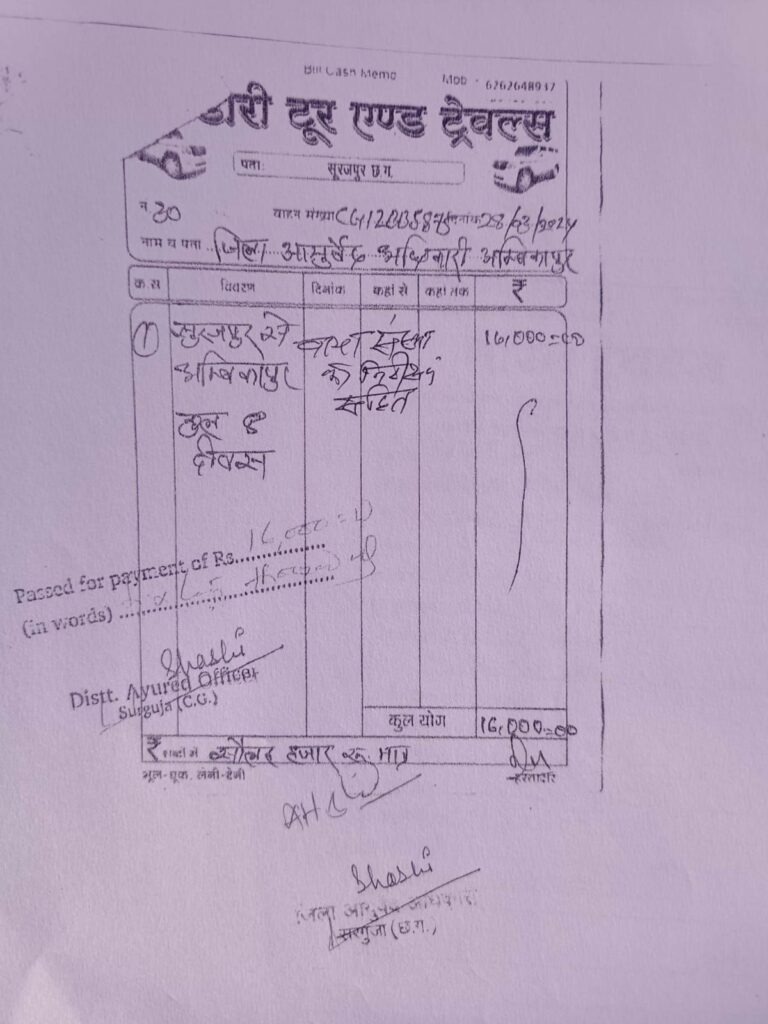 Bill Cash Memo Mob - 6262648937
डारी टूर एण्ड ट्रेवल्स
पता: सूरजपुर छ.ग.
न 30 वाहन संख्या दिनांक 28/03/2024
नाम व पता .. जिला आयुर्वेद अधिकारी अम्बिकापुर
क.स विवरण दिनांक कहां से कहां तक ₹
① सुरजपुर से संस्था 16,000=00
अम्बिकापुर का निरीक्षण
सहित
कुल 8
दीवस
Passed for payment of Rs. 16,000=00
(in words) thousand
Shashi
Distt. Ayured Officer
Surguja (C.G.)
कुल योग 16,000=00
₹ शब्दों में सोलह हजार रू. मात्र
भूल-चूक, लेनी-देनी हस्ताक्षर
Shashi
जिला आयुर्वेद अधिकारी
सरगुजा (छ.ग.)